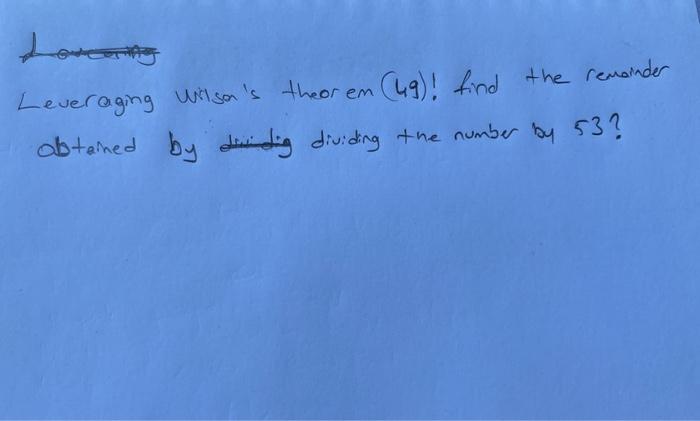 Leveraging Wilson's theorem (49)! find the remainder
obtained by dividing the number by 53?